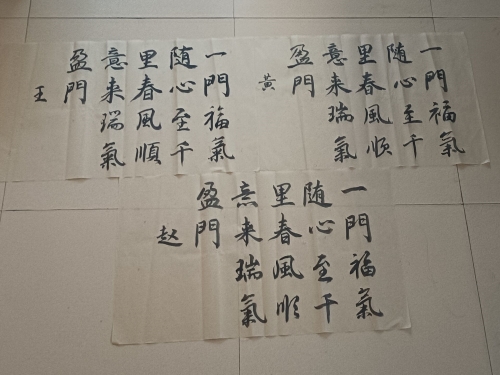 一門福氣
随心至千
里春風順
意来瑞氣
盈門
王
一门福氣
随心至千
里春風顺
意来瑞氣
盈門
黄
一門福氣
随心至千
里春風順
意来瑞氣
盈門
赵